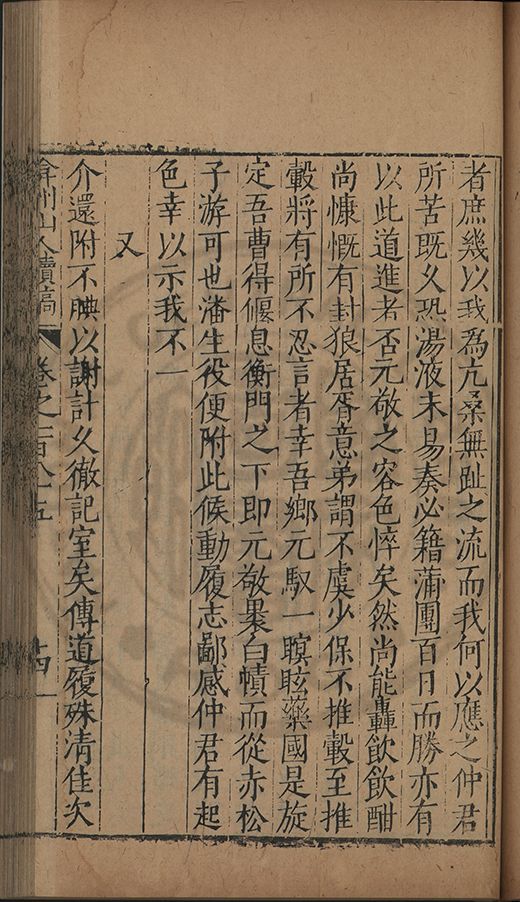 者庶幾以我為亢桑無趾之流而我何以應之仲君
所苦既久恐湯液未易奏必籍蒲團百日而勝亦有
以此道進者否元敬之容色悴矣然尚能轟飲飲酣
尚慷慨有封狼居胥意弟謂不虞少保不推轂至推
轂將有所不忍言者幸吾鄉元馭一瞑眩藥國是旋
定吾曹得偃息衡門之下即元敬畏白幘而從赤松
子游可也潘生役便附此候動履志鄙感仲君有起
色幸以示我不一
又
介還附不腆以謝計久徹記室矣傳道履殊清佳次
弇州山人續稿
卷之一百八十五
十四